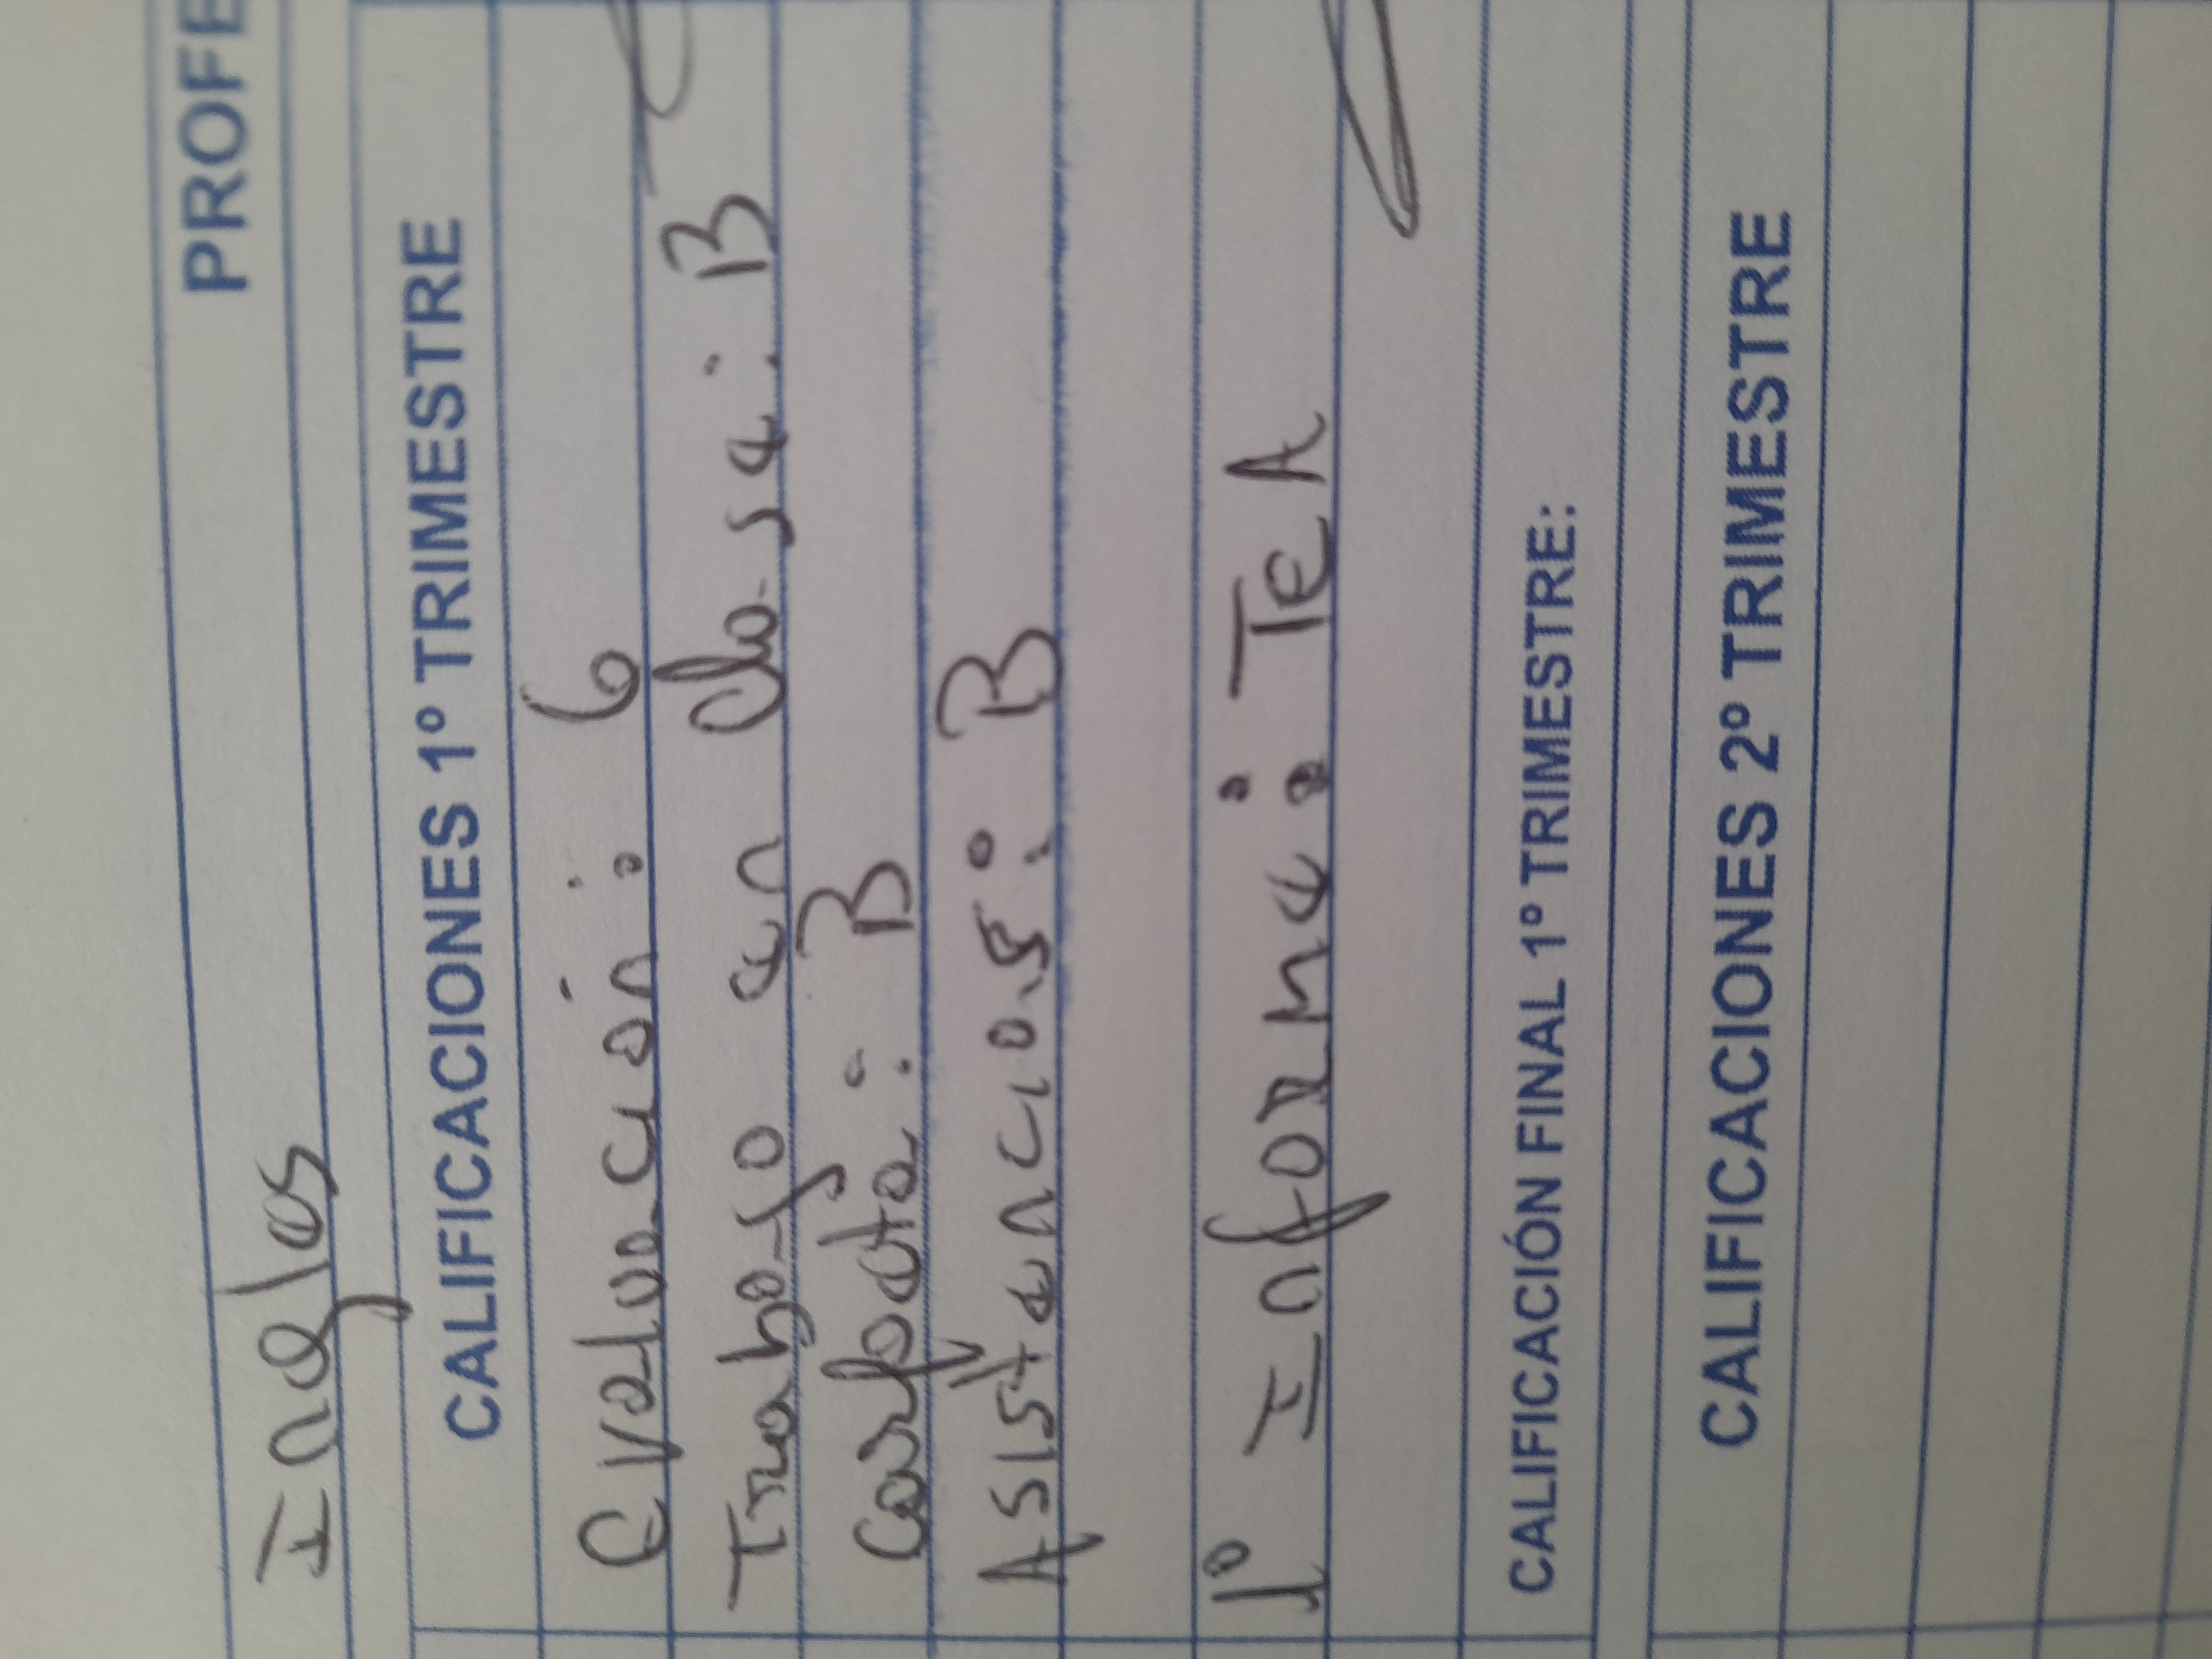 PROFE
Ingles
CALIFICACIONES 1º TRIMESTRE
Evaluación: 6
Trabajo en clase: B
Carpeta: B
Asistencias: B
1º Informe: TEA
CALIFICACIÓN FINAL 1º TRIMESTRE:
CALIFICACIONES 2º TRIMESTRE